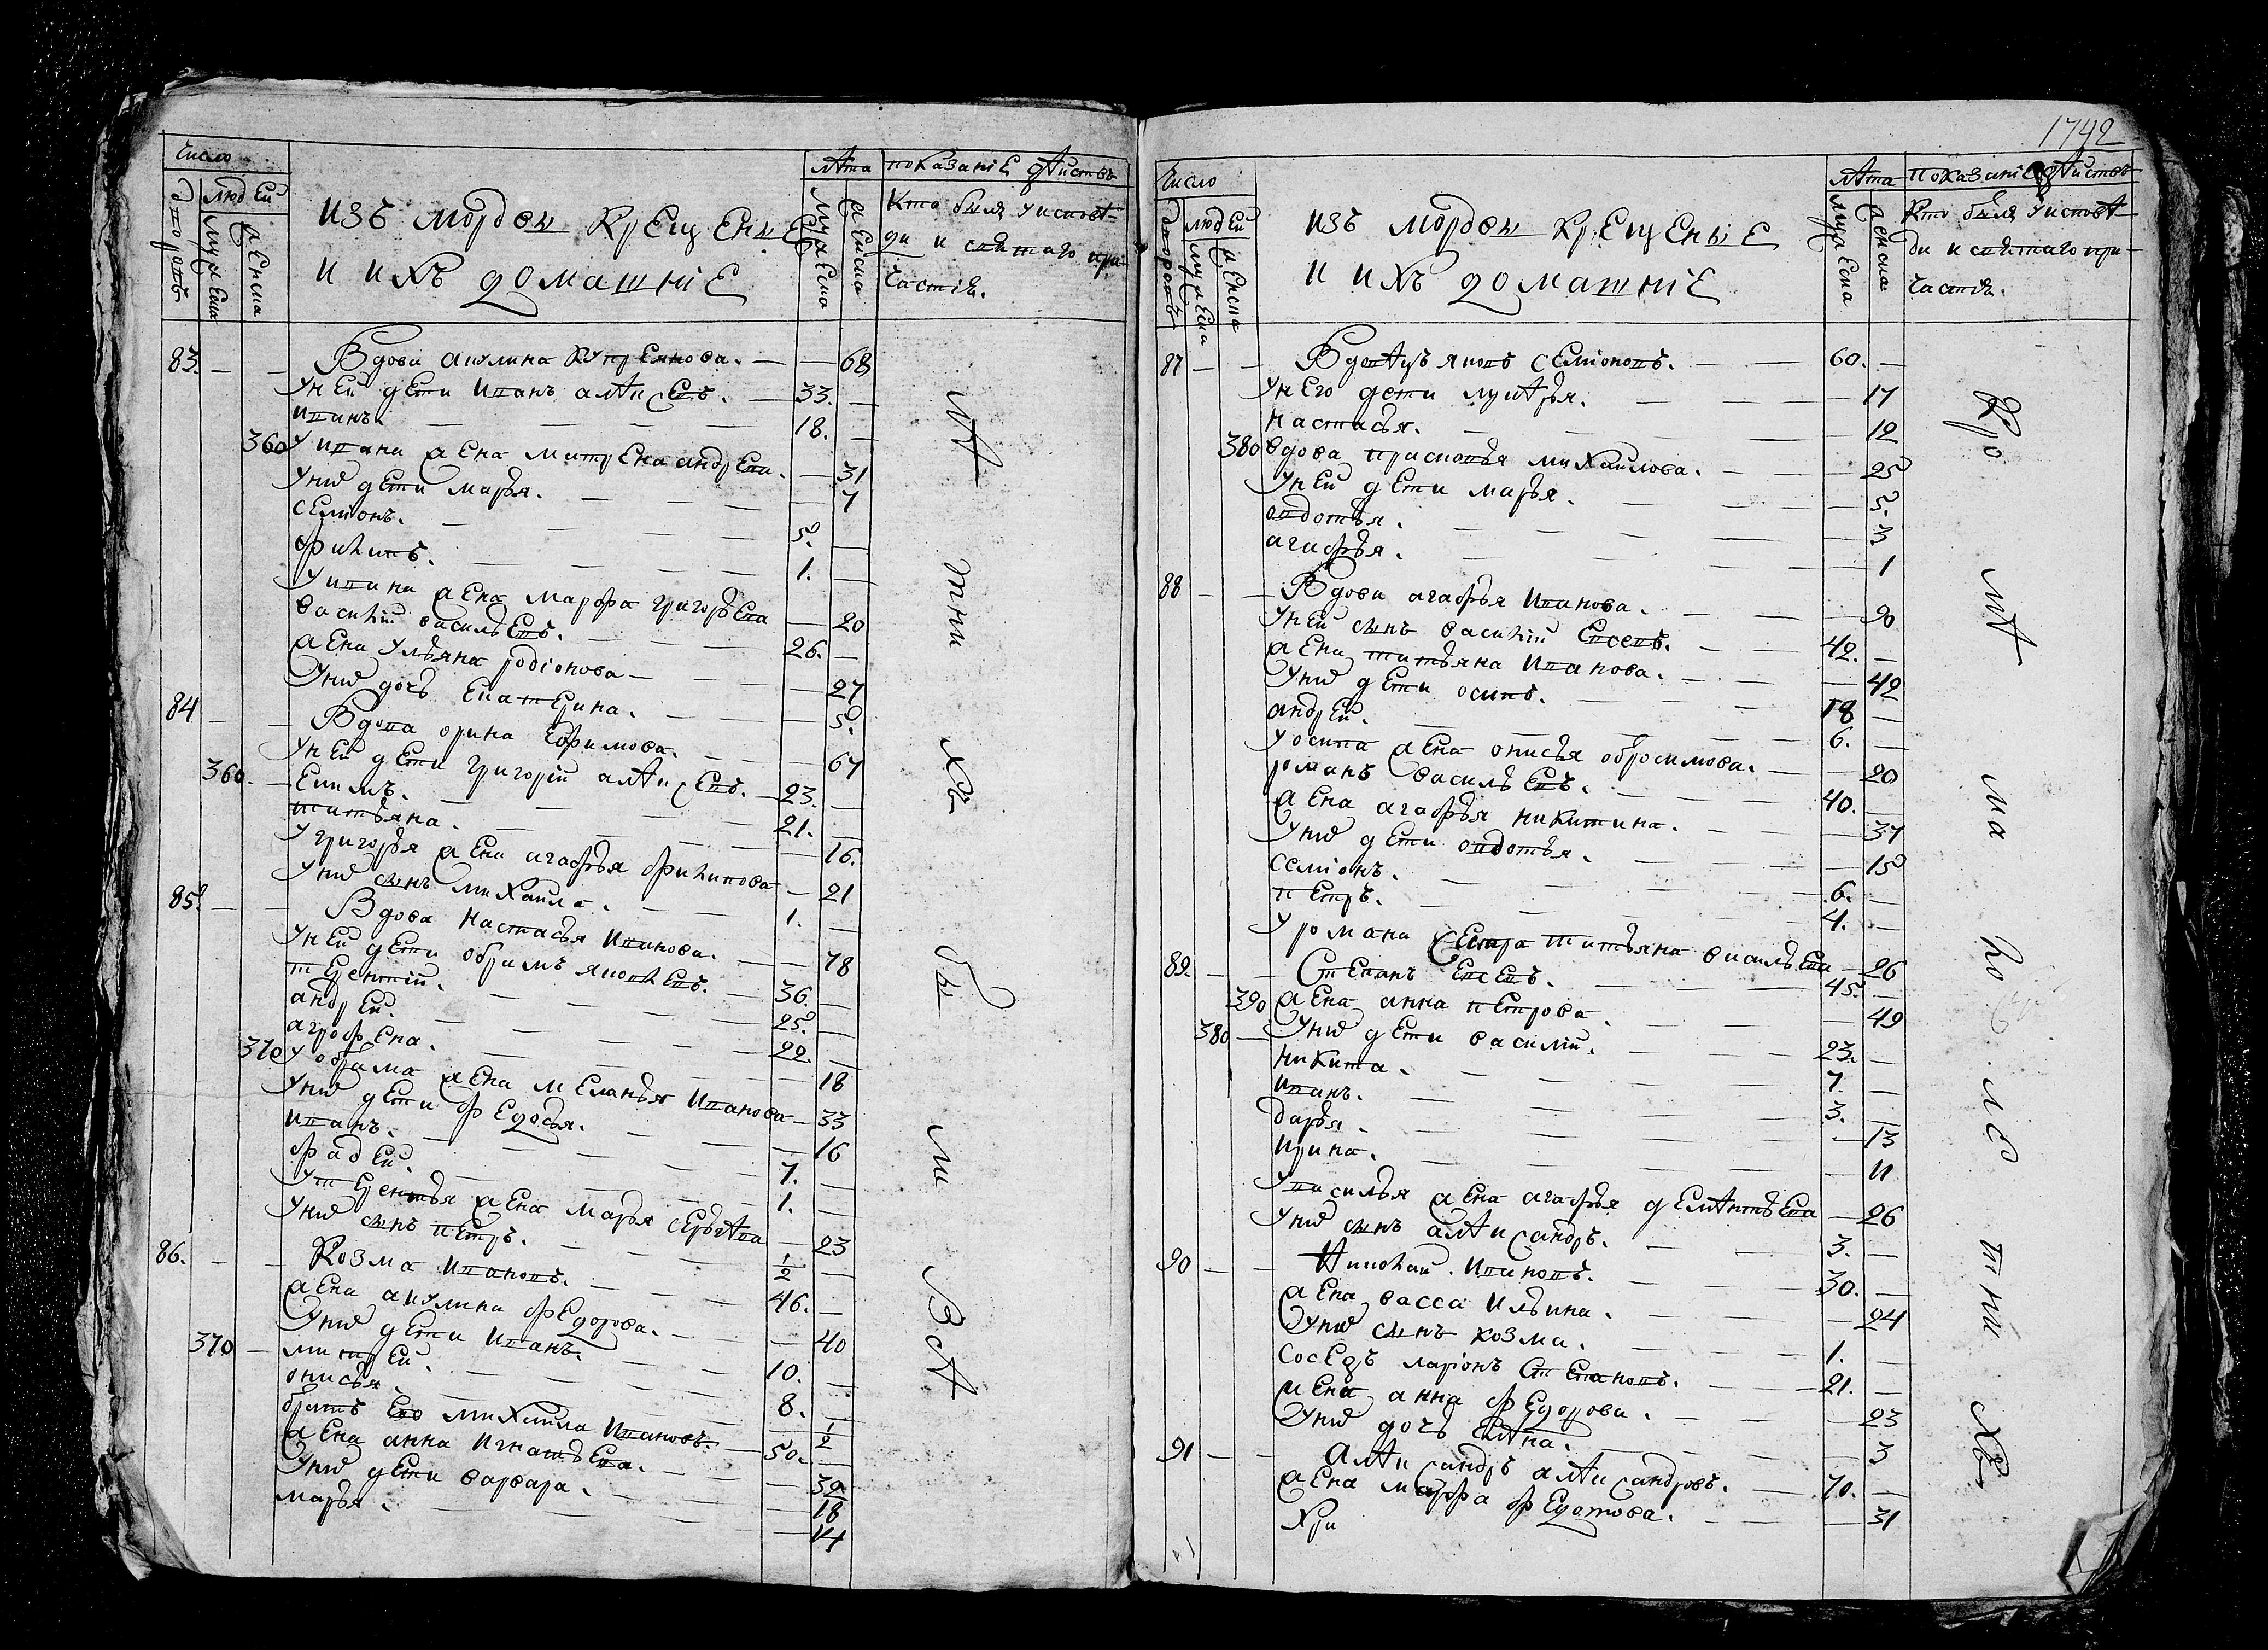 Число
дворовъ
людей
мужеска
женска
изъ мордвы крещеные
и ихъ домашніе
лѣта
мужеска
женска
показаніе дѣйствъ
Кто былъ у исповѣ-
ди и святаго при-
частія.
83. — — Вдова акулина Купреянова. — — 68
У ней дети Иванъ алѣксѣевъ. — 33. —
Иванъ. — — — 18. —
360 У ивана жена матрена андреева. — 31
У нихъ дети марья. — — — 7
семіонъ. — — — 5. —
филипъ. — — — 1. —
У ивана жена марфа григорьева — 20
василій васильевъ. — — 26. —
жена ульяна родіонова — — — 27
У нихъ дочь екатерина. — — — 5.
84 — — Вдова орина ефимова. — — — 67
У ней дети григорій алѣксѣевъ. — 23. —
360. — Екимъ. — — — 21. —
татьяна. — — — 16.
У григорья жена агафья филипова — 21
У нихъ сынъ михаила. — — 1. —
85. — — Вдова настасья Иванова. — — 78
У ней дети обрамъ яковлевъ. — 36. —
терентій. — — — 25. —
андрей. — — — 22. —
агрофена. — — — 18
370 У обрама жена меланья Иванова — 33
У нихъ дети федосья. — — — 16
Иванъ. — — — 7. —
фадей. — — — 1. —
У терентья жена марья сергѣева — 23
У нихъ сынъ петръ. — — 1/2 —
86. — — Козма Ивановъ. — — 46. —
жена акулина федорова. — — — 40
У нихъ дети Иванъ. — — 10. —
370 — матвей. — — — 8. —
онисья — — — 1/2
братъ ево михаила Ивановъ. — 50. —
жена анна Игнатьева. — — — 39
У нихъ дети варвара. — — — 18
марья. — — — 14
лѣ
тни
хъ
бы
ли
Всѣ
1742
Число
дворовъ
людей
мужеска
женска
изъ мордвы крещеные
и ихъ домашніе
лѣта
мужеска
женска
показаніе дѣйствъ
Кто былъ у исповѣ-
ди и святаго при-
частія.
87 — — Вдовецъ яковъ семіоновъ. — — 60. —
У него дети лукѣрья. — — — 17
настасья. — — — 12
380 вдова прасковья михайлова. — — 25
У ней дети марья. — — — 5.
овдотья. — — — 3.
агафья. — — — 1
88 — — Вдова агафья Иванова. — — — 90
У ней сынъ василій Евсевъ. — — 42. —
жена татьяна Иванова. — — — 42
У нихъ дети осипъ. — — 18 —
андрей. — — — 6. —
У осипа жена онисья обросимова. — — 20
романъ васильевъ. — — 40. —
жена агафья никитина. — — — 37
У нихъ дети овдотья. — — — 15
семіонъ. — — — 6. —
петръ. — — — 4. —
У романа сестра татьяна васильева — 26
89. — — Степанъ Евсевъ. — — 45. —
390 жена анна петрова — — — 49
380 — У нихъ дети василій. — — 23. —
никита. — — — 7. —
Иванъ. — — — 3. —
дарья. — — — 13
Ирина. — — — 11
У василья жена агафья дементьева — 26
У нихъ сынъ алѣксандръ. — — 3. —
90 — — Николай. Ивановъ. — — 30. —
жена васса Ильина. — — — 24
У нихъ сынъ козма. — — 1. —
Соседъ ларіонъ Степановъ. — — 21. —
жена анна федорова. — — — 23
У нихъ дочь Елѣна. — — — 3
91 — — алѣксандръ алѣксандровъ. — 70. —
жена марфа федотова. — — — 31
Хри
Кро
мѣ
ма
ло
лѣ
тнй
хъ.